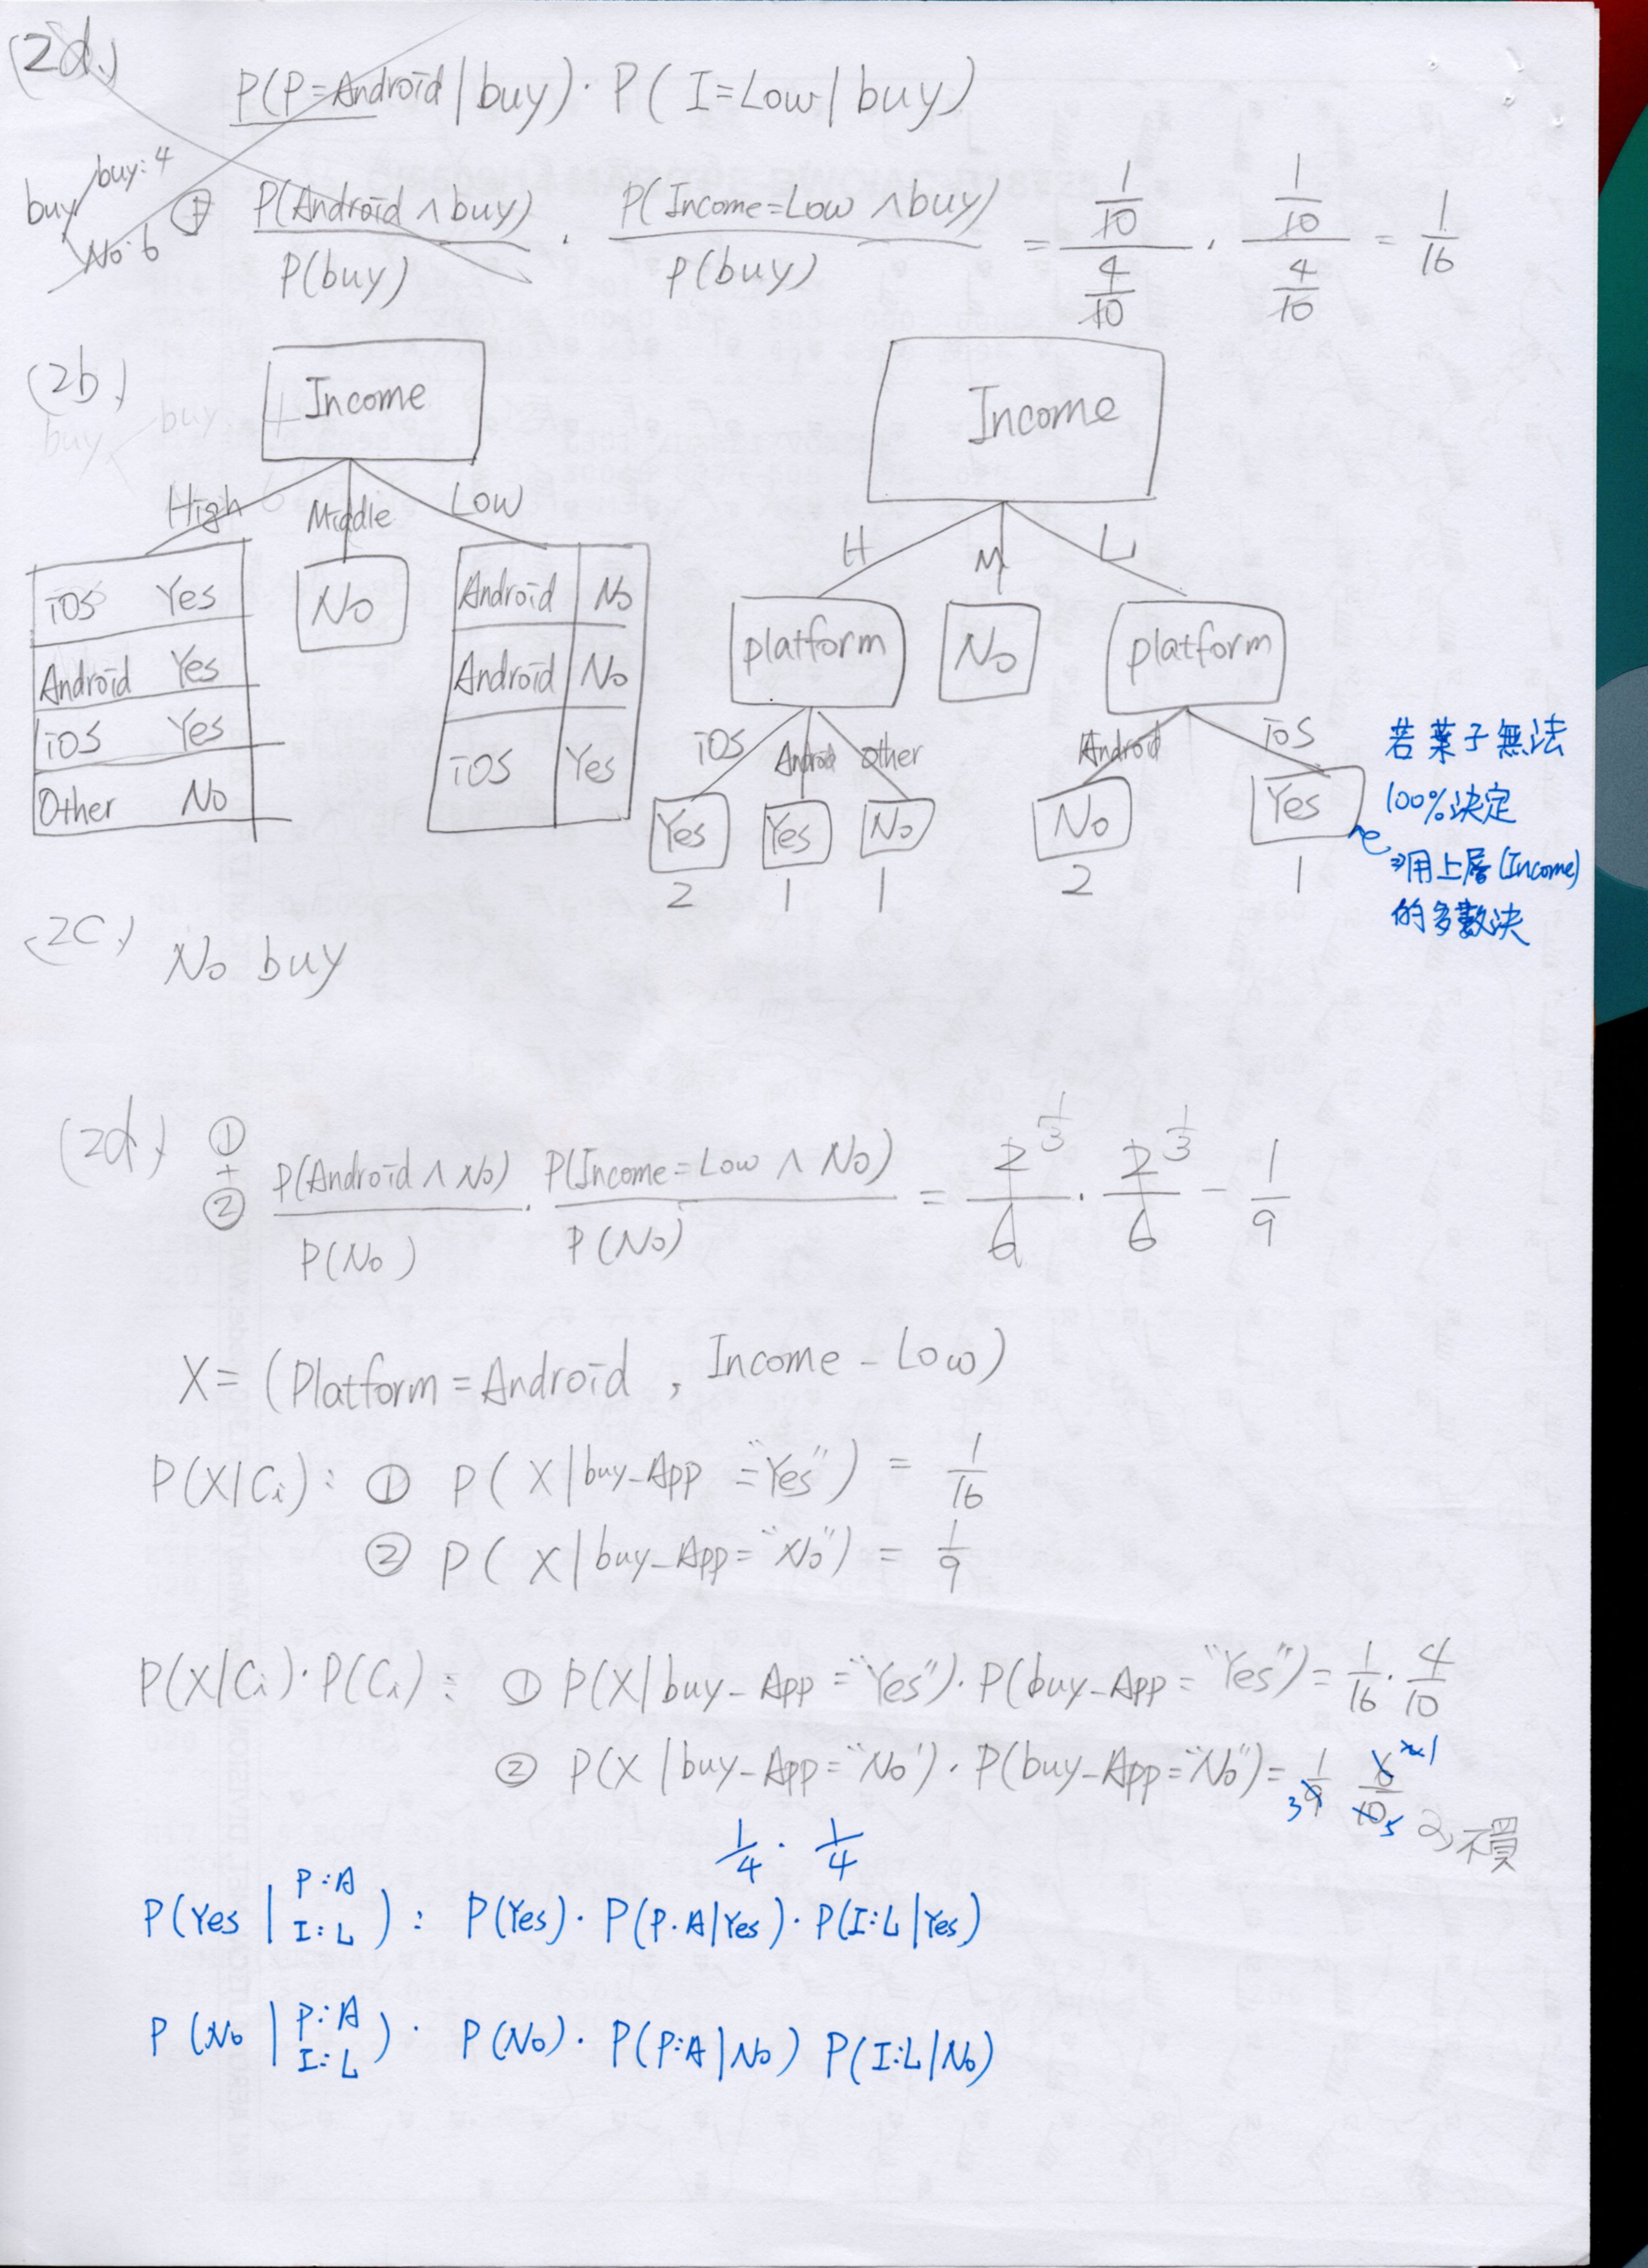 (2d.)
P(P=Android | buy) · P( I=Low | buy)
buy
buy: 4
No: 6
① P(Android ∧ buy) / P(buy) · P(Income=Low ∧ buy) / P(buy) = (1/10) / (4/10) · (1/10) / (4/10) = 1/16
(2b.)
buy buy
Income
High Middle Low
iOS Yes
Android Yes
iOS Yes
Other No
No
Android No
Android No
iOS Yes
Income
H M L
platform No platform
iOS Android Other Android iOS
Yes Yes No No Yes
2 1 1 2 1
若葉子無法
100%決定
⇒用上層(Income)
的多數決
(2c.) No buy
(2d.) ① + ② P(Android ∧ No) / P(No) · P(Income=Low ∧ No) / P(No) = 2/6 1/3 · 2/6 1/3 - 1/9
X= (Platform=Android , Income - Low)
P(X|Ci): ① P( X | buy-App ="Yes") = 1/16
② P( X | buy-App="No") = 1/9
P(X|Ci)·P(Ci): ① P(X|buy-App ="Yes")·P(buy-App="Yes")= 1/16 · 4/10
② P(X |buy-App="No')·P(buy-App="No")= 1/9 6/10 3 1 5 不買
1/4 · 1/4
P(Yes | P:A I:L ) : P(Yes)· P(P.A|Yes)· P(I:L|Yes)
P (No | P:A I:L ) · P(No)· P(P:A|No) P(I:L|No)